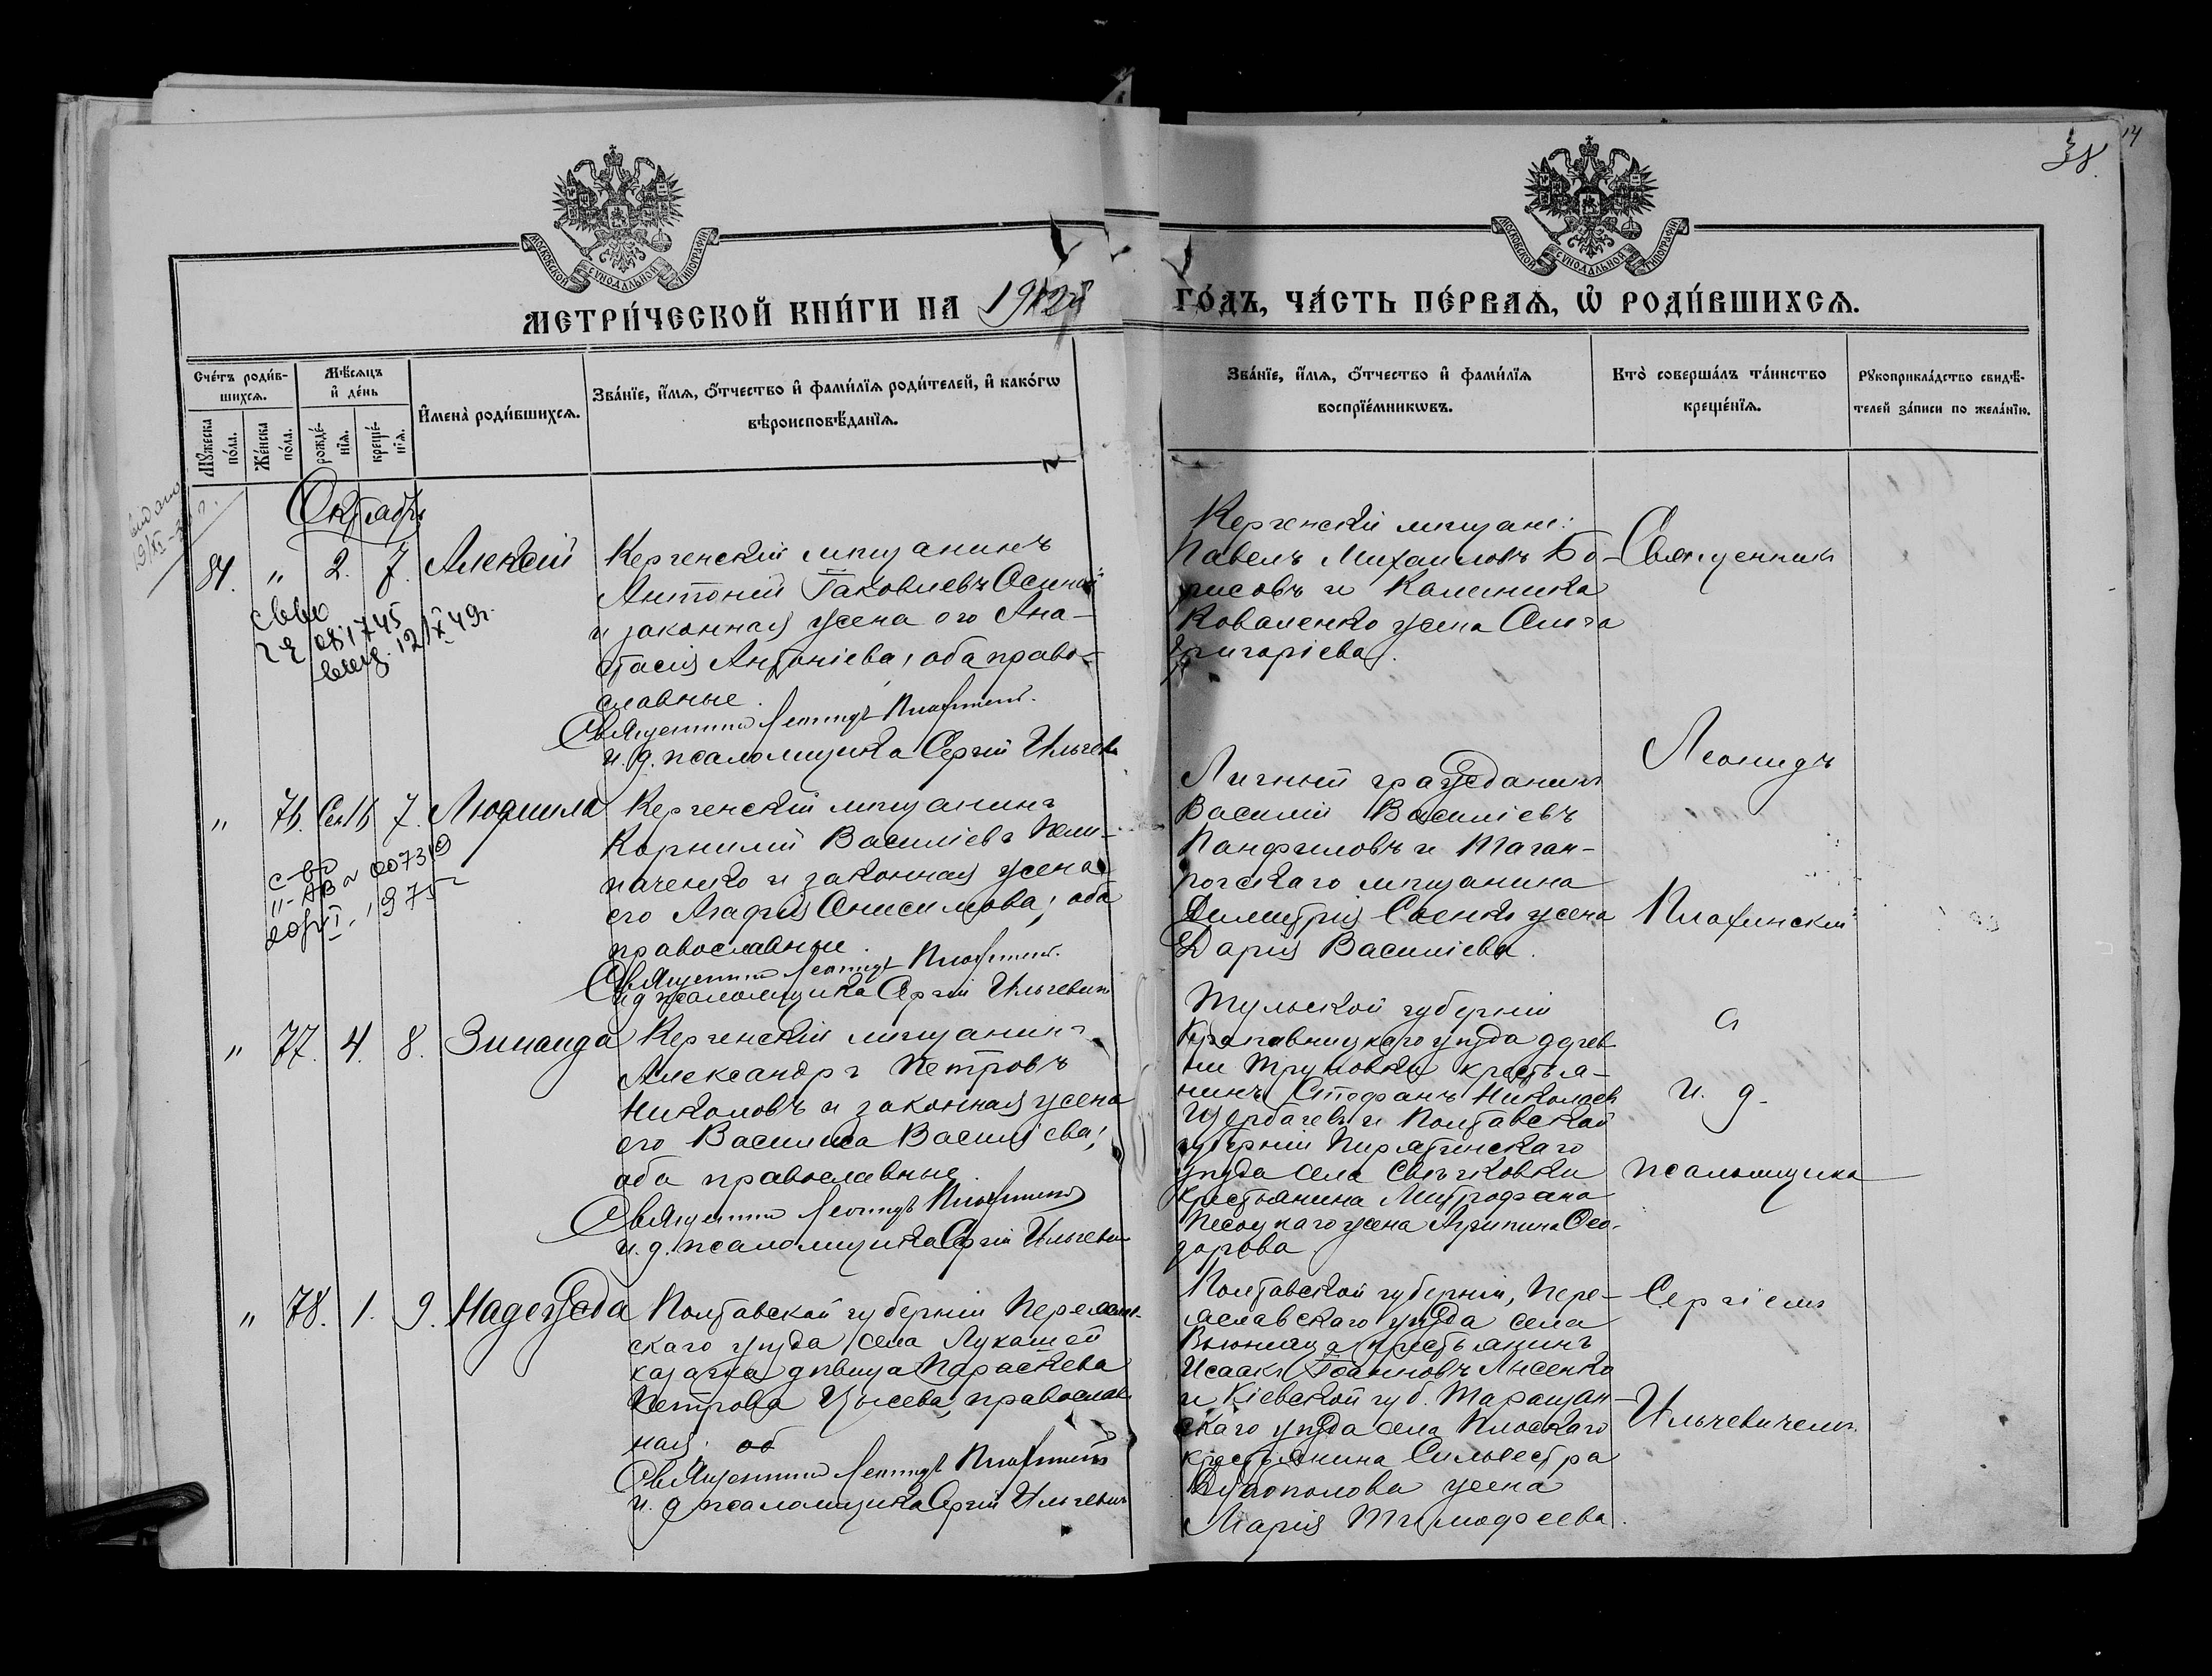 38
МОСКОВСКОЙ СУНОДАЛЬНОЙ ТИПОГРАФІИ
МОСКОВСКОЙ СУНОДАЛЬНОЙ ТИПОГРАФІИ
МЕТРИ́ЧЕСКОЙ КНИ́ГИ НА 1912й
ГО́ДЪ, ЧА́СТЬ ПЕ́РВАѦ, Ѡ РОДИ́ВШИХСѦ.
Сче́тъ роди́в-
шихсѧ.
Мꙋ́жеска по́ла.
Же́нска по́ла.
Мѣ́сѧцъ
и҆ де́нь
рожде́-
нїѧ.
креще́-
нїѧ.
И҆мена̀ роди́вшихсѧ.
Зва́нїе, и҆́мѧ, ѻ҆́тчество и҆ фами́лїѧ роди́телей, и҆ како́гѡ
вѣроисповѣ́данїѧ.
Зва́нїе, и҆́мѧ, ѻ҆́тчество и҆ фами́лїѧ
воспрїе́мникѡвъ.
Кто̀ соверша́лъ та́инство
креще́нїѧ.
Рꙋкоприкла́дство свидѣ́-
телей за́писи по жела́нїю.
Октябрь
84. " 2. 7. Алексій
Керченскій мѣщанинъ
Антоній Іаковлевъ
и законная жена его Ана-
стасія Антоніева, оба право-
славные.
Священникъ Леонидъ
и. д. псаломщика Сергій Ильчевичъ
Керченскій мѣщане:
Павелъ Михаиловъ Бо-
рисовъ и Калиника
Коваленко жена Ольга
Григоріева.
Священникъ
" 76. Сен 16 7. Людмила
Керченскій мѣщанинъ
Корнилій Василіевъ
и законная жена
его Агафія Онисимова; оба
православные.
Священникъ Леонидъ
и. д. псаломщика Сергій Ильчевичъ
Личный гражданинъ
Василій Василіевъ
Панфиловъ и Таган-
рогскаго мѣщанина
Димитрія жена
Дарія Василіева.
Леонидъ
" 77. 4. 8. Зинаида
Керченскій мѣщанинъ
Александръ Петровъ
Николовъ и законная жена
его Василиса Василіева;
оба православные.
Священникъ Леонидъ
и. д. псаломщика Сергій Ильчевичъ
Тульской губерніи
Крапивницкаго уѣзда дерев-
ни кресть-я-
нинъ Стефанъ Николаевъ
Щербачевъ и Полтавской
губерніи Пирятинскаго
уѣзда села
крестьянина Митрофана
жена Агрипина Ѳео-
дорова.
и
и. д.
псаломщика
" 78. 1. 9. Надежда
Полтавской губерніи Переяслав-
скаго уѣзда села Лукашей
казачка дѣвица Параскева
Петрова православ-
ная. об
Священникъ Леонидъ
и. д. псаломщика Сергій Ильчевичъ
Полтавской губерніи, Пере-
яславскаго уѣзда села
крестьянинъ
Исаакъ Іоанновъ Лысенко
и Кіевской губ. Таращан-
скаго уѣзда села Плоскаго
крестьянина Сильвестра
жена
Марія Тимофеева.
Сергіемъ
Ильчевичемъ.